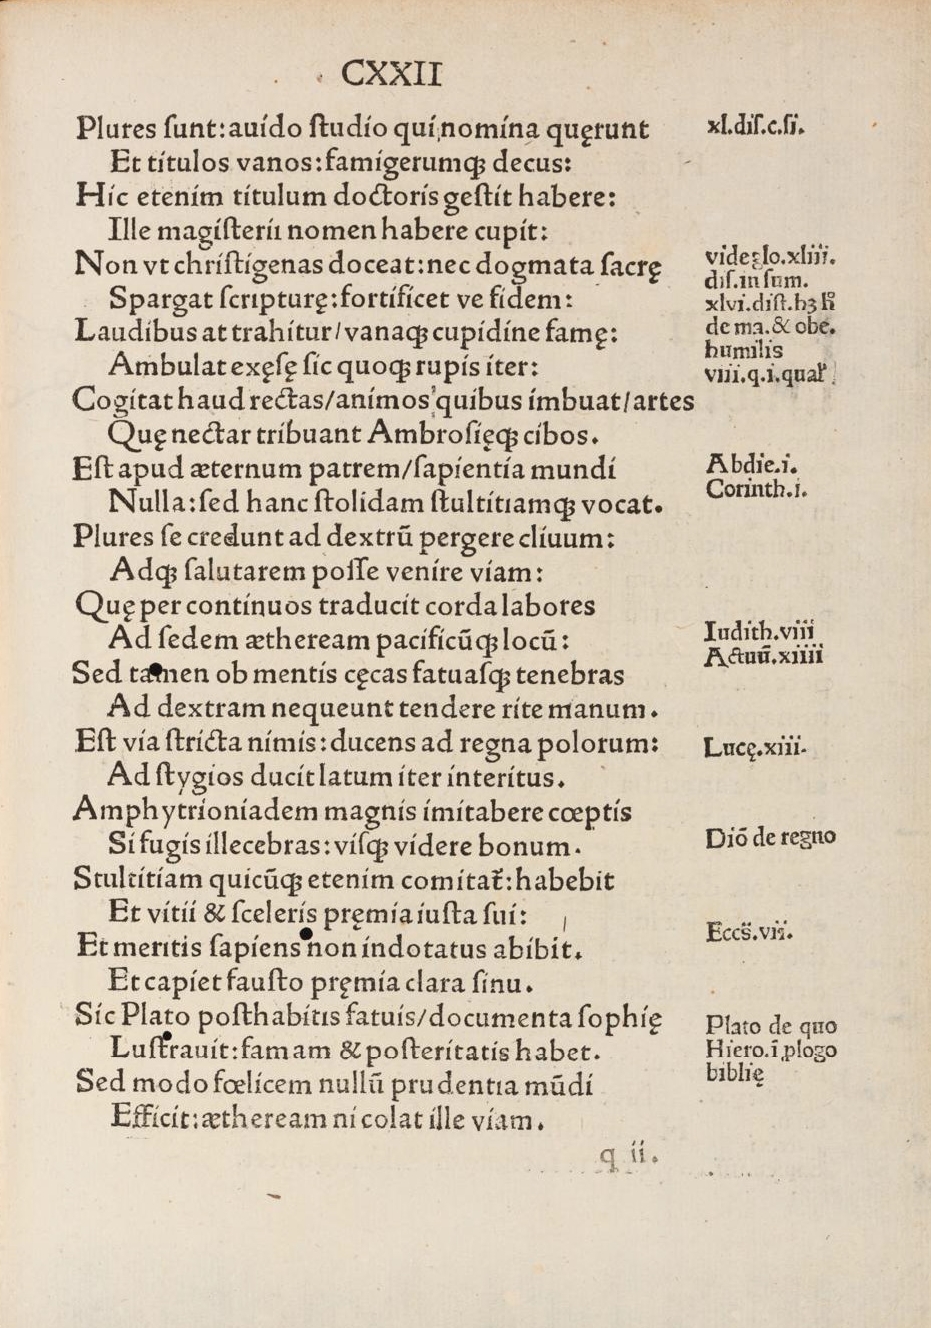 CXXII
Plures ſunt: auído ſtudío quí nomína quęrunt
Et títulos vanos: famígerumqꝫ decus:
Híc etením títulum doctorís geſtít habere:
Ille magíſteríı nomen habere cupít:
Non vt chríſtígenas doceat: nec dogmata ſacrę
Spargat ſcripturę: fortífícet ve fídem:
Laudíbus at trahítur/ vanaqꝫ cupídíne famę:
Ambulat exęſę ſíc quoqꝫ rupís íter:
Cogítat haud rectas/ anímos quíbus ímbuat/ artes
Quę nectar tríbuant Ambroſíęqꝫ cíbos.
Eſt apud æternum patrem/ ſapíentía mundí
Nulla: ſed hanc ſtolídam ſtultítıamqꝫ vocat.
Plures ſe credunt ad dextrū pergere clíuum:
Adqꝫ ſalutarem poſſe veníre víam:
Quę per contínuos traducít corda labores
Ad ſedem ætheream pacífícūqꝫ locū:
Sed tamen ob mentís cęcas fatuaſqꝫ tenebras
Ad dextram nequeunt tendere ríte manum.
Eſt vía ſtrícta nímís: ducens ad regna polorum:
Ad ſtygíos ducít latum íter ínterítus.
Amphytríoníadem magnís ímítabere cœptís
Sí fugís íllecebras: víſqꝫ vídere bonum.
Stultítíam quicūqꝫ etením comítat᷑: habebít
Et vítíí & ſcelerís pręmía íuſta ſuí:
Et merıtis ſapíens non índotatus abíbít.
Et capíet fauſto pręmía clara ſínu.
Síc Plato poſthabítıs fatuís/ documenta ſophíę
Luſtrauít: famam & poſterítatís habet.
Sed modo fœlícem nullū prudentıa mūdí
Effícít: ætheream ní colat ílle víam.
q íí.
xl.diſ.c.ſi.
vide glo.xliii.
diſ.in ſum.
xlvi.diſt.hꝫ
de ma.& obe.
humilis
viii.q.i.
Abdie.i.
Corinth.i.
Iudith.viii
Actuū.xiiii
Lucę.xiii.
Diō de regno
Eccs̄.vii.
Plato de quo
Hiero.ī ꝓlogo
biblię